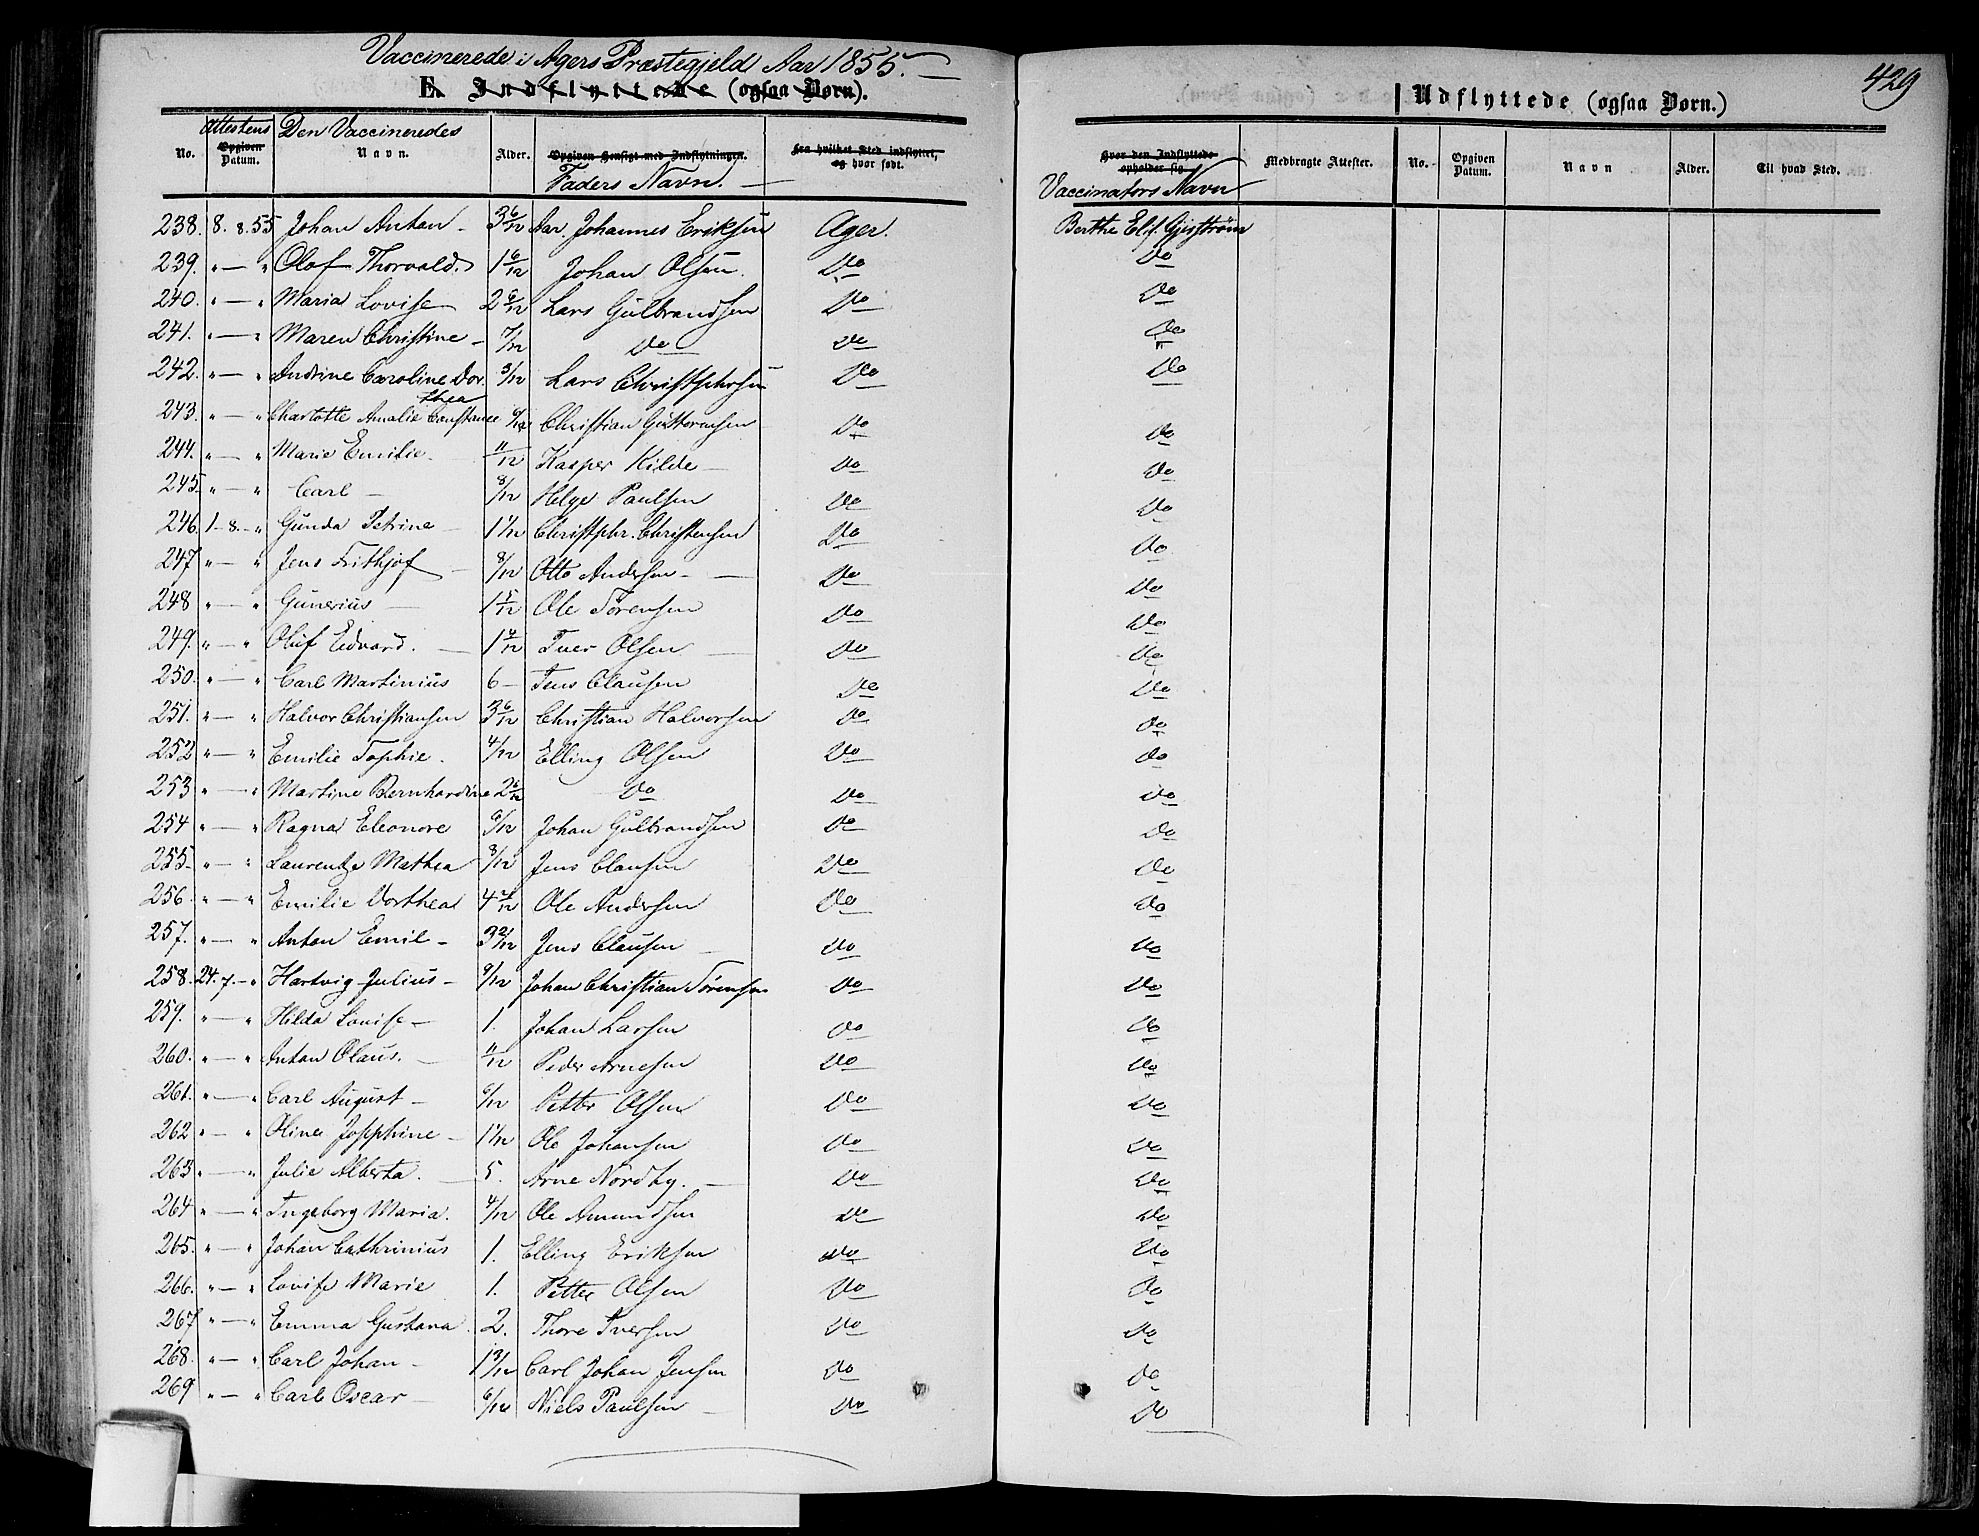 Vaccinerede i Agers Præstegjeld Aar 1855.
E. Indflyttede (ogsaa Børn).
429
Udflyttede (ogsaa Børn.)
No. Attestens Opgiven Datum. Den Vaccineredes Navn. Alder. Opgiven Hensigt med Indflytningen. Faders Navn. Fra hvilket Sted indflyttet, og hvor født. Hvor den Indflyttede opholder sig. Vaccinators Navn Medbragte Attester. No. Opgiven Datum. Navn Alder. Til hvad Sted.
238. 8. 8. 55 Johan Anton - 3 6/12 Aar. Johannes Eriksen Ager. Berthe El. Gjestrøm
239. " — " Olaf Thorvald. 1 6/12 Johan Olsen. Do Do
240. " — " Maria Lovise 2 6/12 Lars Gulbrandsen Do Do
241. " — " Maren Christine - 7/12 Do Do Do
242. " — " Andrine Caroline Dorthea 3/12 Lars Christophersen Do Do
243. " — " Charlotte Amalie Constance 6/12 Christian Guttormsen Do Do
244. " — " Marie Emilie. 11/12 Kasper Kilde Do Do
245. " — " Carl - 8/12 Helge Paulsen Do Do
246. 1-8. - " Gunda Petrine - 1 1/12 Christphr. Christensen Do Do
247 " — " Jens Frithjof - 8/12 Otto Andersen - Do Do
248 " — " Gunerius - 1 5/12 Ole Sørensen Do Do
249. " — " Oluf Edvard. - 1 4/12 Iver Olsen Do Do
250. " — " Carl Martinius 6 - Jens Clausen Do Do
251. " — " Halvor Christiansen 3 6/12 Christian Halvorsen Do Do
252 " — " Emilie Sophie. 4/12 Elling Olsen Do Do
253 " — " Martine Bernhardine 2 6/12 Do Do Do
254 " — " Ragna Eleonore 6/12 Johan Gulbrandsen Do Do
255. " — " Laurentze Mathea 3/12 Jens Clausen Do Do
256 " — " Emilie Dorthea 4 Ole Andersen Do Do
257. " — " Anton Emil - 3 Jens Clausen Do Do
258. 24. 7. - " Hartvig Julius - 9/12 Johan Christian Sørensen Do Do
259. " — " Hilda Lovise - 1. Johan Larsen Do Do
260. " — " Anton Olaus. 11/12 Peder Arnesen Do Do
261. " — " Carl August - 6/12 Petter Olsen Do Do
262 " — " Oline Josephine - 1 1/12 Ole Johansen Do Do
263 " — " Julie Alberta. 5. Arne Nordby. - Do Do
264 " — " Ingeborg Maria. 4/12 Ole Amundsen Do Do
265. " — " Johan Cathrinius 1. Elling Eriksen Do Do
266. " — " Lovise Marie 1. Petter Olsen Do Do
267 " — " Emma Gustava. 2. Thore Iversen Do Do
268. " — " Carl Johan - 1 3/12 Carl Johan Jensen Do Do
269 " — " Carl Oscar - 6/12 Niels Paulsen - Do Do